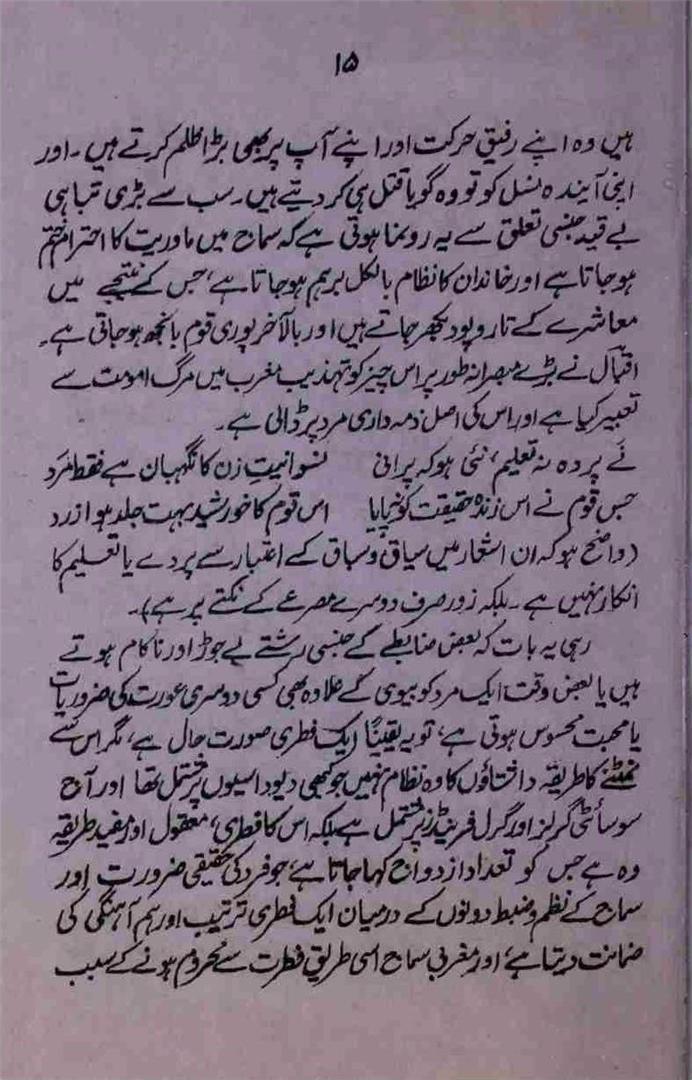 ۱۵
ہیں وہ اپنے رفیقِ حرکت اور اپنے آپ پر بھی بڑا ظلم کرتے ہیں۔ اور
اپنی آیندہ نسل کو تو وہ گویا قتل ہی کر دیتے ہیں۔ سب سے بڑی تباہی
بے قید جنسی تعلق سے یہ رونما ہوتی ہے کہ سماج میں ماوریت کا احترام ختم
ہو جاتا ہے اور خاندان کا نظام بالکل برہم ہو جاتا ہے، جس کے نتیجے میں
معاشرے کے تاروپود بکھر جاتے ہیں اور بالآخر پوری قوم بانجھ ہو جاتی ہے۔
اقبال نے بڑے مبصرانہ طور پر اس چیز کو تہذیبِ مغرب میں مرگِ امومت سے
تعبیر کیا ہے اور اس کی اصل ذمہ داری مرد پر ڈالی ہے۔
نے پردہ نہ تعلیم، نئی ہو کہ پرانی نسوانیتِ زن کا نگہبان ہے فقط مَرد
جس قوم نے اس زندہ حقیقت کو نہ پایا اس قوم کا خورشید بہت جلد ہوا زرد
(واضح ہو کہ ان اشعار میں سیاق و سباق کے اعتبار سے پردے یا تعلیم کا
انکار نہیں ہے۔ بلکہ زور صرف دوسرے مصرعے کے نکتے پر ہے)۔
رہی یہ بات کہ بعض ضابطے کے جنسی رشتے بے جوڑ اور ناکام ہوتے
ہیں یا بعض وقت ایک مرد کو بیوی کے علاوہ بھی کسی دوسری عورت کی ضروریات
یا محبت محسوس ہوتی ہے، تو یہ یقیناً ایک فطری صورت حال ہے، مگر اس سے
نمٹنے کا طریقہ داشتاؤں کا وہ نظام نہیں جو کبھی دیوداسیوں پر مشتمل تھا اور آج
سوسائٹی گرلز اور گرل فرینڈز پر مشتمل ہے بلکہ اس کا فطری، معقول اور مفید طریقہ
وہ ہے جس کو تعدادِ ازدواج کہا جاتا ہے، جو فرد کی حقیقی ضرورت اور
سماج کے نظم و ضبط دونوں کے درمیان ایک فطری ترتیب اور ہم آہنگی کی
ضمانت دیتا ہے، اور مغربی سماج اسی طریقِ فطرت سے محروم ہونے کے سبب